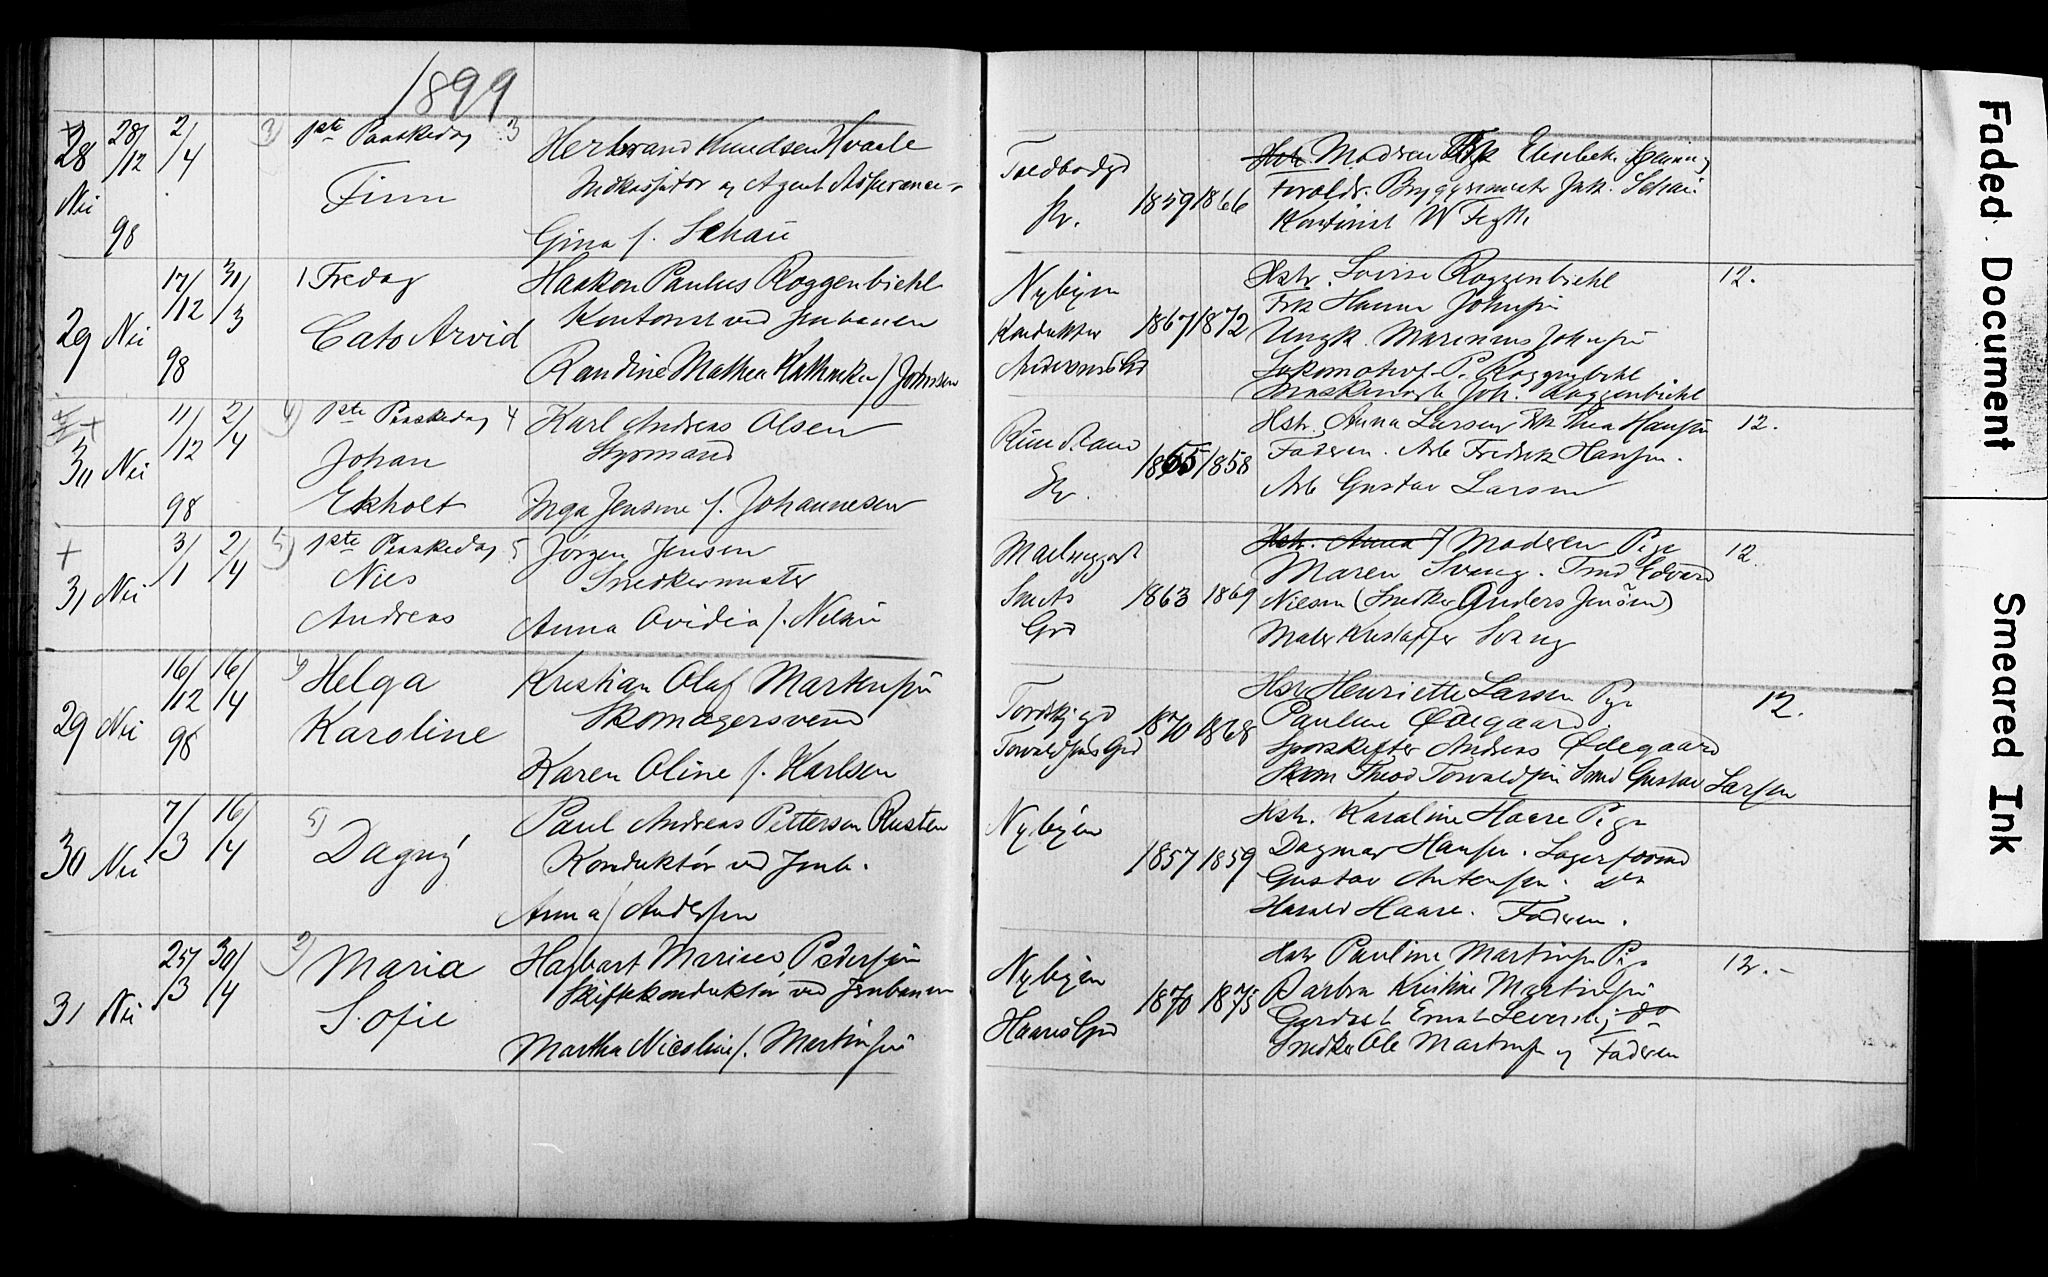 1899
28 Nei 28/12 98 2/4 3) 1ste Paaskedag 3
Finn
Herbrand Knudsen Hvaale
Inkassator og Agent
Gina f. Schau
Toldbodgd
1859 1866
Hstr. Modren Elisbeth
Foreldr. Bryggerimester Jak. Schau
Kontorist W
29 Nei 17/12 98 31/3 1 Fredag
Cato Arvid
Haakon Paulus Roggenbiehl
Kontorist ved Jernbanen
Randine Mathea Kathinka f. Johnsen
Nybyen
Konduktør
1867 1872
Hstr. Lovise Roggenbiehl
Frk Hanna Johnsen
Ungk. Marinius Johnsen
Lokomotivf. P. Roggenbiehl
Joh. Roggenbiehl
12.
30 Nei 11/12 98 2/4 4) 1ste Paaskedag 4
Johan
Ekholt
Karl Andreas Olsen
Styrmand
Inga Jensine f. Johannesen
1855 1858
Hstr. Anna Larsen Frk Thea Hansen
Faderen. Arb Fredrik Hansen.
Arb Gustav Larsen
12.
31 Nei 3/1 2/4 5) 1ste Paaskedag 5
Nils
Andreas
Jørgen Jensen
Snedkermester
Anna Ovidia f. Nilsen
Smeds
Grd
1863 1869
Hstr. Anna J Modren Pige
Maren Svang. Smd Edvard
Nilsen (Snedker Anders Jensen)
Maler Kristoffer Svang
12.
29 Nei 16/12 98 16/4 4)
Helga
Karoline
Kristian Olaf Martensen
Skomagersvend
Karen Oline f. Karlsen
Tordskjgd
Torvaldsens Grd
1870 1868
Hstr Henriette Larsen Pge
Pauline Ødegaard.
Sporskifter Andreas Ødegaard
Skom Theod Torvaldsen Smd Gustav Larsen
12.
30 Nei 7/3 16/4 5)
Dagny
Paul Andreas Petterson Rusten
Konduktør ved Jernb.
Anna f. Andersen
Nybyen
1857 1859
Hstr. Karaline Haare Pige
Dagmar Hansen. Lagerformd
Gustav Antensen. do
Harald Haare. Faderen.
31 Nei 25/3 30/4 2)
Maria
Sofie
Harbart Marius Pedersen
Skiftekonduktør ved Jernbanen
Martha Nicoline f. Martinsen
Nybyen
Haares Grd
1870 1875
Hstr Pauline Martinsen Pige
Barbra Kristine Martinsen
Gardist Ernst do
Snedker Ole Martinsen og Faderen
12.-
Faded Document
Smeared Ink